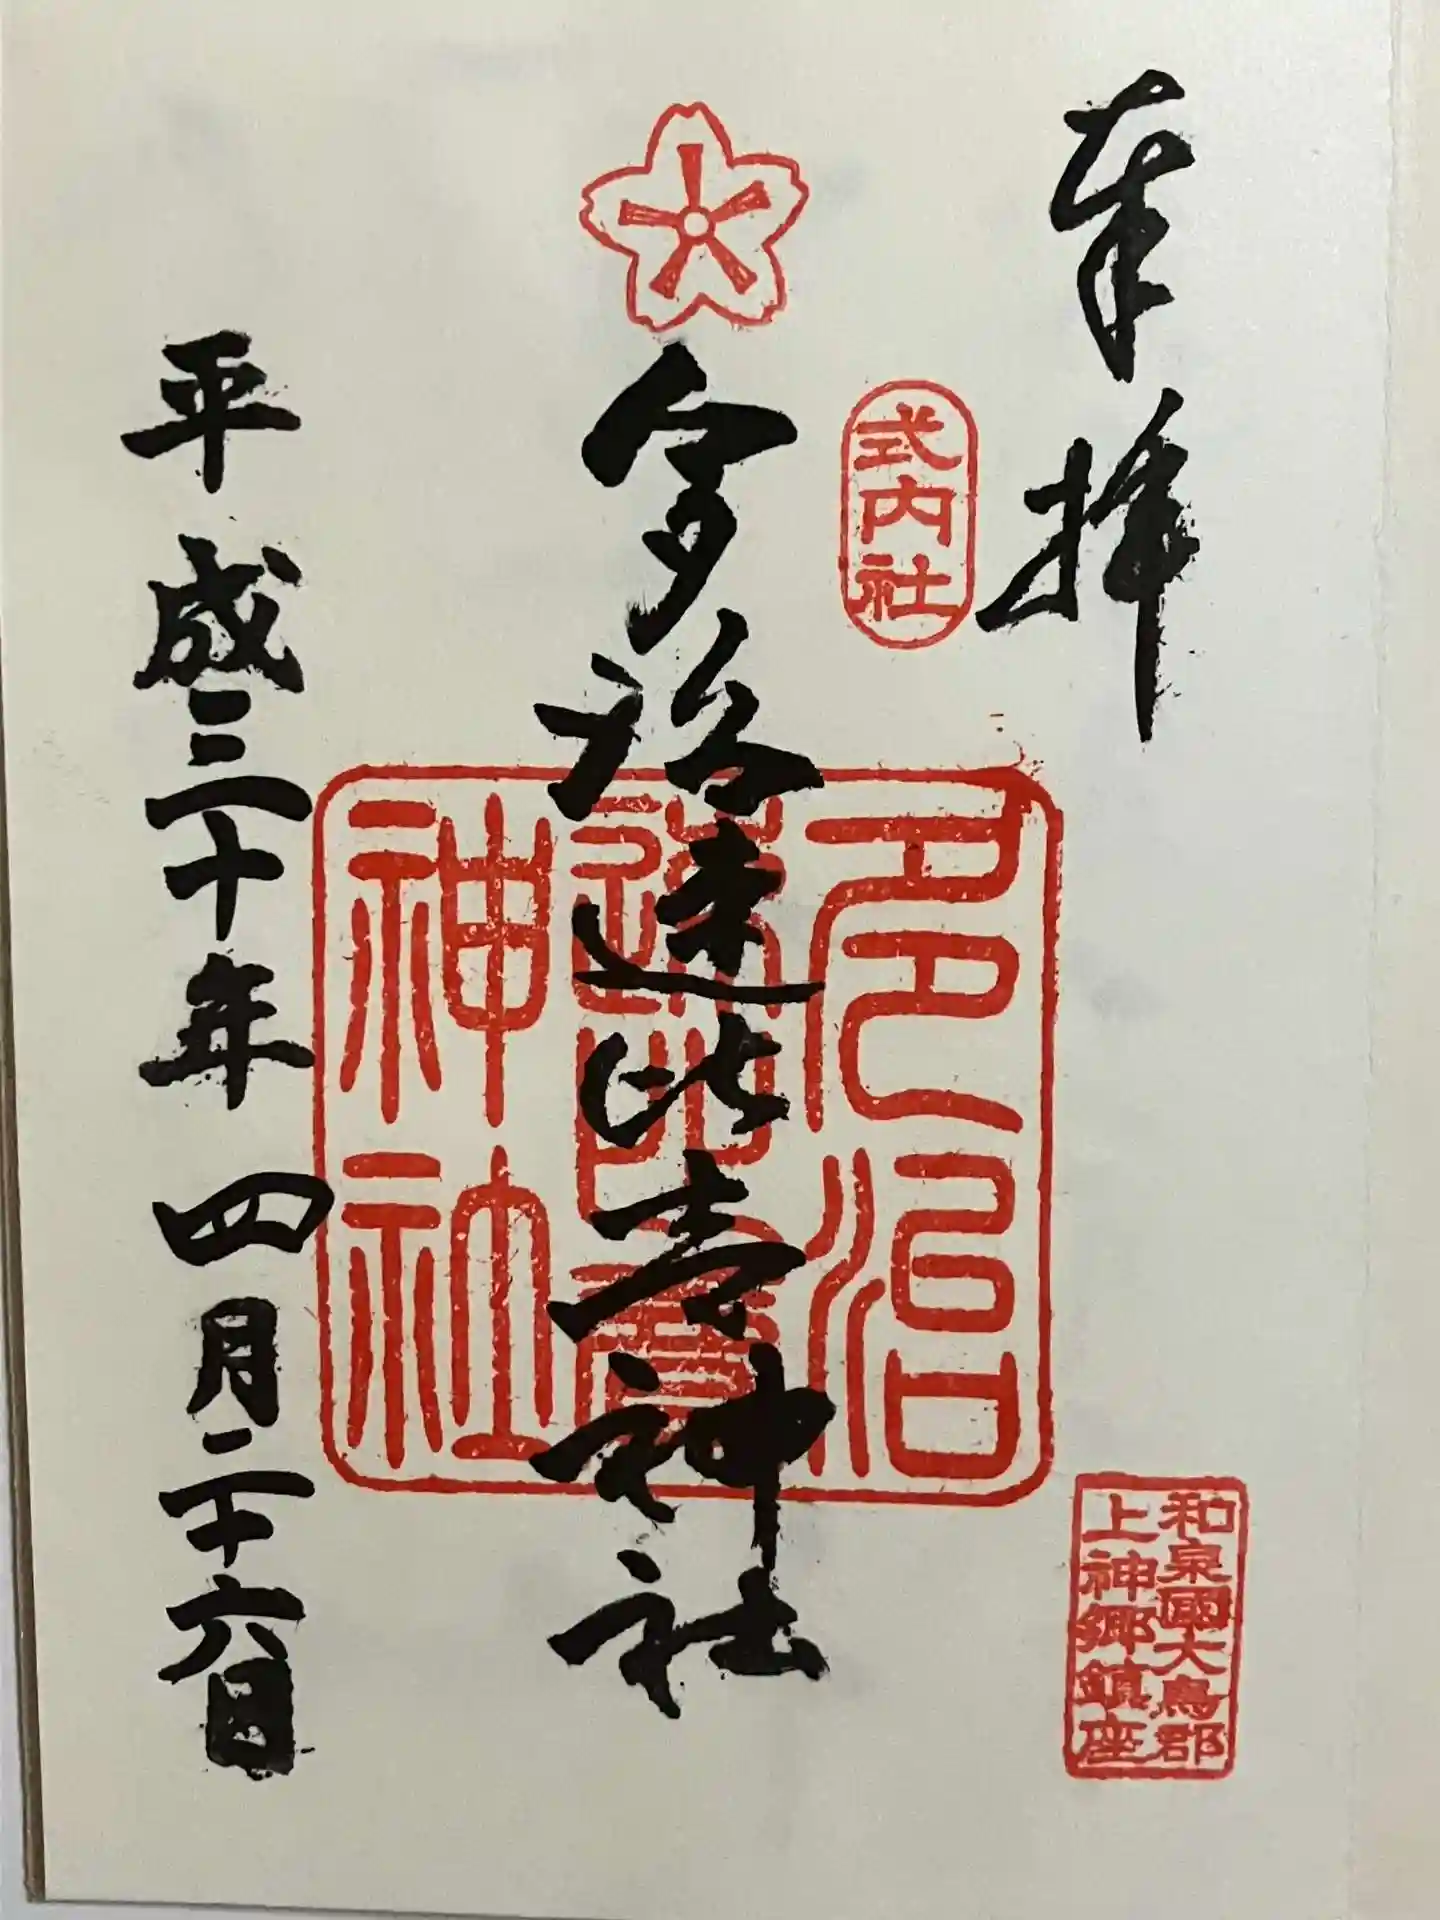 奉拝
式内社
和泉國大鳥郡
上神郷鎮座
多治速比売神社
多治
速比賣
神社
平成三十年四月二十六日